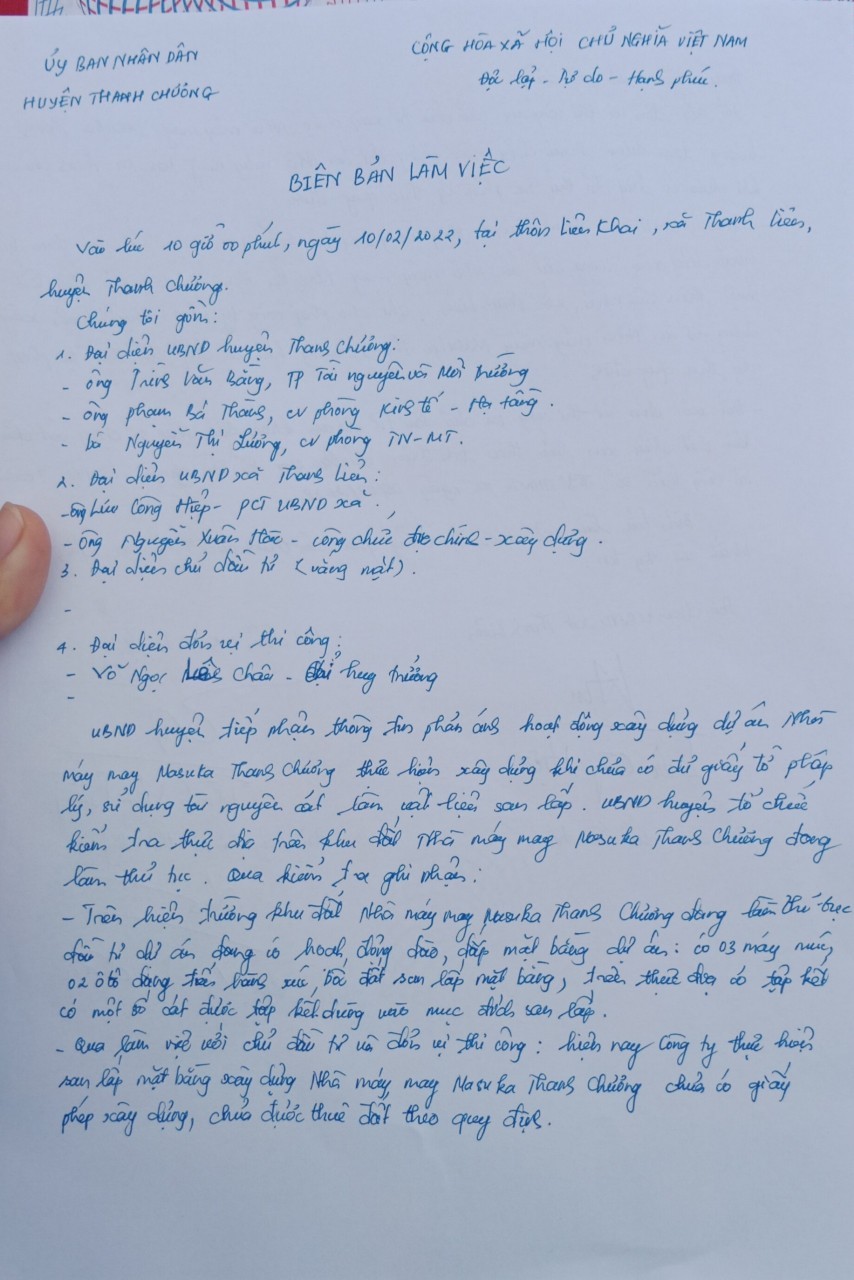 ỦY BAN NHÂN DÂN
HUYỆN THANH CHƯƠNG
CỘNG HÒA XÃ HỘI CHỦ NGHĨA VIỆT NAM
Độc lập - Tự do - Hạnh phúc.
BIÊN BẢN LÀM VIỆC
Vào lúc 10 giờ 00 phút, ngày 10/02/2022, tại thôn Liên Khai, xã Thanh Liên,
huyện Thanh Chương.
Chúng tôi gồm:
1. Đại diện UBND huyện Thanh Chương:
- ông Trình Văn Bằng, TP Tài nguyên và Môi trường
- ông Phạm Bá Thành, cv phòng Kinh tế - Hạ tầng.
- bà Nguyễn Thị Lương, cv phòng TN-MT.
2. Đại diện UBND xã Thanh Liên:
- ông Lưu Công Hiệp - PCT UBND xã.,
- ông Nguyễn Xuân - công chức địa chính - xây dựng.
3. Đại diện chủ đầu tư (vắng mặt).
-
4. Đại diện đơn vị thi công:
- Võ Ngọc Châu - Chỉ huy trưởng
-
UBND huyện tiếp nhận thông tin phản ánh hoạt động xây dựng dự án Nhà
máy may Nasuka Thanh Chương thực hiện xây dựng khi chưa có đủ giấy tờ pháp
lý, sử dụng tài nguyên cát làm vật liệu san lấp. UBND huyện tổ chức
kiểm tra thực địa trên khu đất Nhà máy may Nasuka Thanh Chương đang
làm thủ tục. Qua kiểm tra ghi nhận:
- Trên hiện trường khu đất Nhà máy may Nasuka Thanh Chương đang làm thủ tục
đầu tư dự án đang có hoạt động đào, đắp mặt bằng dự án: có 03 máy múc,
02 ô tô đang tiến hành xúc, bốc đất san lấp mặt bằng, trên thực địa có tập kết
có một số cát được tập kết dùng vào mục đích san lấp.
- Qua làm việc với chủ đầu tư và đơn vị thi công: hiện nay Công ty thực hiện
san lấp mặt bằng xây dựng Nhà máy may Nasuka Thanh Chương chưa có giấy
phép xây dựng, chưa được thuê đất theo quy định.